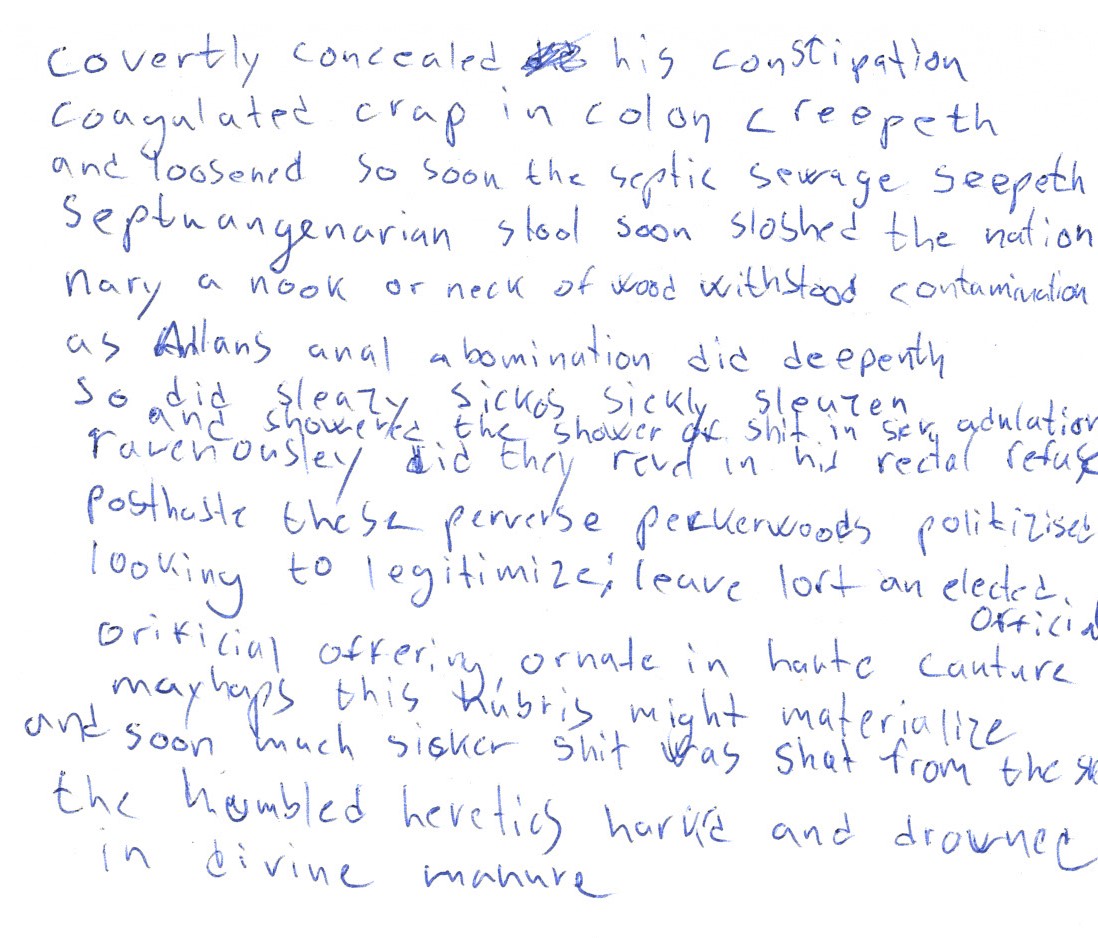 covertly concealed his constipation
coagulated crap in colon creepeth
and loosened so soon the septic sewage seepeth
Septuangenarian stool soon sloshed the nation
nary a nook or neck of wood withstood contamination
as Allans anal abomination did deepenth
so did sleazy sickos sickly
and showered the shower of shit in sky adulation
ravenousley did they revel in his rectal refuse
posthaste these perverse peckerwoods politizised
looking to legitimize; leave lort an elected
official
orificial offering, ornate in haute cauture
mayhaps this hubris might materialize
and soon much sicker shit was shat from the
the humbled heretics hark'd and drowned
in divine manure